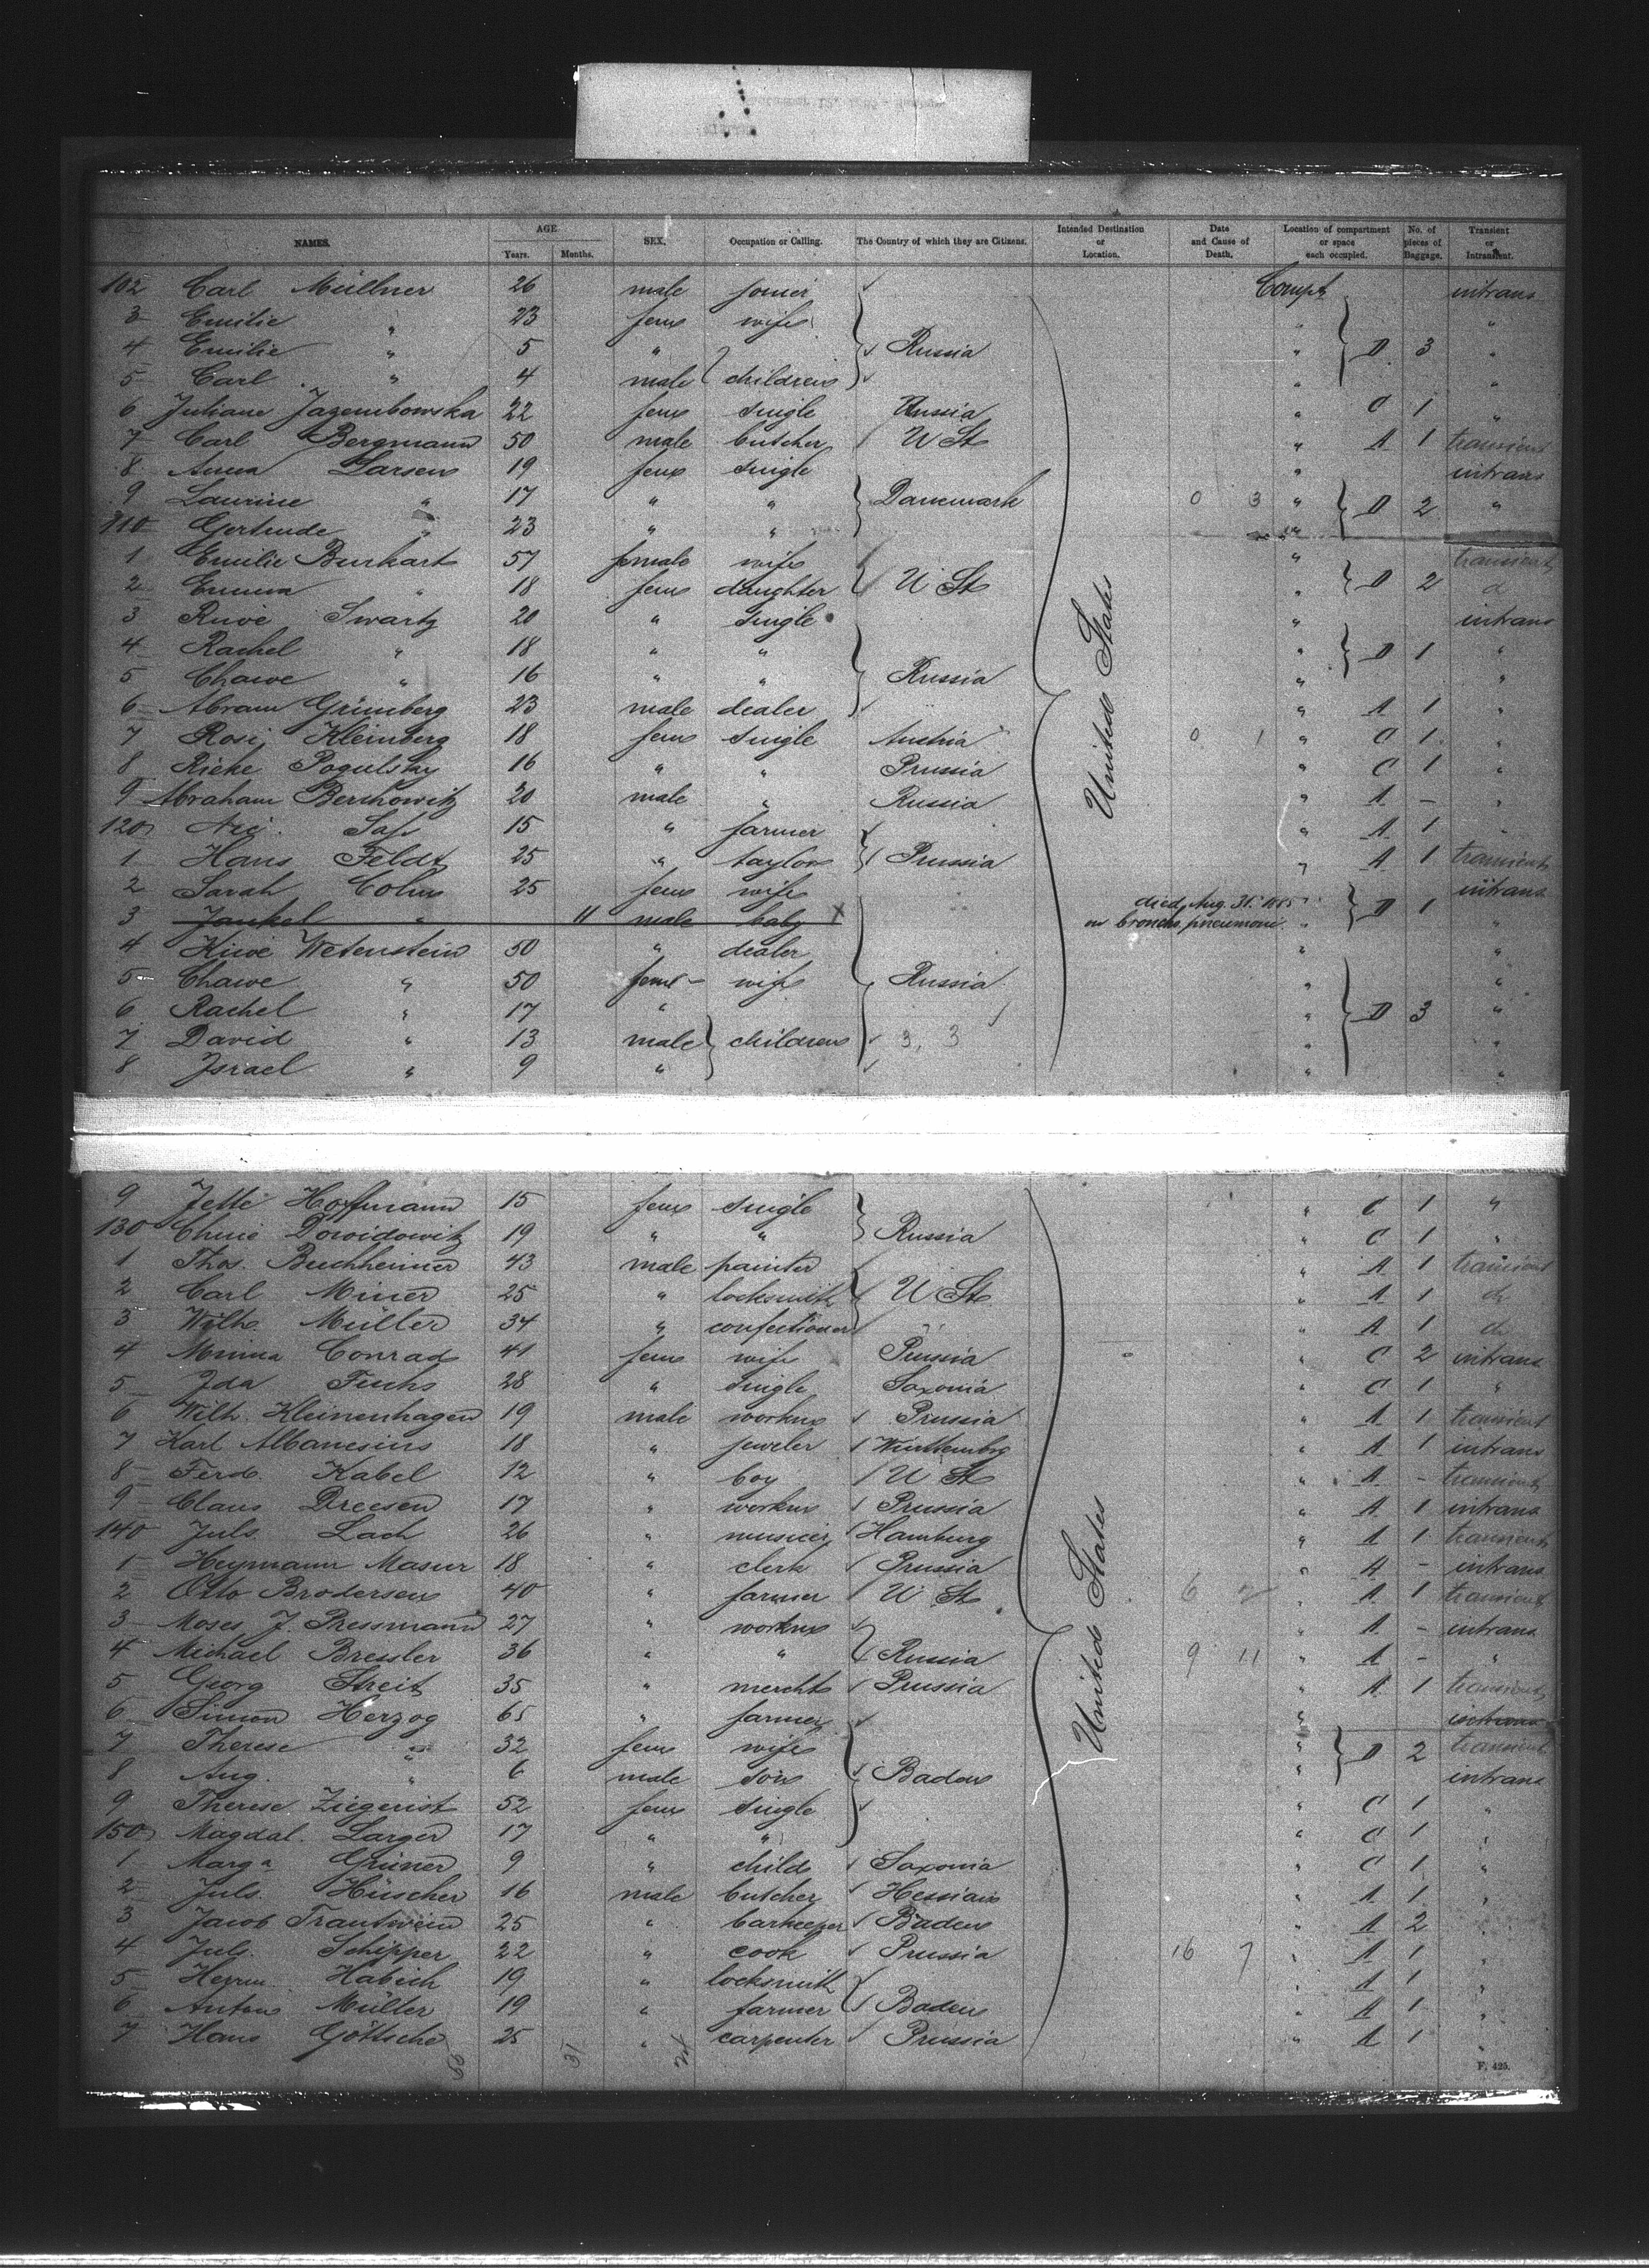 NAMES. AGE. Years. Months. SEX. Occupation or Calling. The Country of which they are Citizens. Intended Destination or Location. Date and Cause of Death. Location of compartment or space each occupied. No. of pieces of Baggage. Transient or Intransient.
102 Carl Müllner 26 male joiner Compt intrans
3 Emilie " 23 fem wife " "
4 Emilie " 5 " Russia " D 3 "
5 Carl " 4 male children " "
6 Juliane Jazembowska 22 fem single Russia " C 1 "
7 Carl Bergmann 50 male butcher U St " A 1 transient
8 Anna Larsen 19 fem single " intrans
9 Laurine " 17 " " Danemark 0 3 " D 2 "
110 Gertrude " 23 " " "
1 Emilie Burkart 57 female wife " transient
2 Emma " 18 fem daughter U St " D 2 d
3 Riwe Swartz 20 " single " intrans
4 Rachel " 18 " " " D 1 "
5 Chawe " 16 " " Russia " "
6 Abram Grünberg 23 male dealer " A 1 "
7 Rosi Kleinberg 18 fem single Austria 0 1 " C 1 "
8 Rieke Pogulsky 16 " " Prussia " C 1 "
9 Abraham Berchowitz 20 male " Russia " A - "
120 15 " farmer " A 1 "
1 Hans Feldt 25 " taylor Prussia " A 1 transient
2 Sarah Cohn 25 fem wife died Aug. 31. " D 1 intrans
3 Jankel " 11 male baby X broncho pneumoni " "
4 Kiwe Wetenstein 50 " dealer " "
5 Chawe " 50 fem wife Russia " "
6 Rachel " 17 " " D 3 "
7 David " 13 male children 3, 3 " "
8 Israel " 9 " " "
United States
9 Jette Hoffmann 15 fem single " C 1 "
130 Chine Dowidowitz 19 " " Russia " C 1 "
1 Thos. Buchheimer 43 male painter " A 1 transient
2 Carl Miner 25 " locksmith U St " A 1 d
3 Wilh. Müller 34 " confectioner " A 1 d
4 Minna Conrad 41 fem wife Prussia " C 2 intrans
5 Ida Fuchs 28 " single Saxonia " C 1 "
6 Wilh. Kleinenhagen 19 male workm Prussia " A 1 transient
7 Karl Albanesius 18 " jeweler Württembrg " A 1 intrans
8 Ferd. Kabel 12 " boy U St " A - transient
9 Claus Dreesen 17 " workm Prussia " A 1 intrans
140 Juls. Lach 26 " musicer Hamburg " A 1 transient
1 Heymann Masur 18 " clerk Prussia " A - intrans
2 Otto Brodersen 40 " farmer U St 6 2 " A 1 transient
3 Moses J. Pressmann 27 " workm " A - intrans
4 Michael Bressler 36 " " Russia 9 11 " A - "
5 Georg Streit 35 " mercht Prussia " A 1 transient
6 Simon Herzog 65 " farmer " intrans
7 Therese " 32 fem wife " D 2 transient
8 Aug. " 6 male son Baden " intrans
9 Therese Ziegerist 52 fem single " C 1 "
150 Magdal. Larger 17 " " " C 1 "
1 Marga Grüner 9 " child Saxonia " C 1 "
2 Juls. Hüscher 16 male butcher Hessian " A 1 "
3 Jacob Trautwein 25 " barkeeper Baden " A 2 "
4 Juls. Schipper 22 " cook Prussia 16 7 " A 1 "
5 Herm. Habich 19 " locksmith " A 1 "
6 Anton Müller 19 " farmer Baden " A 1 "
7 Hans Göttsche 25 " carpenter Prussia " A 1 "
United States
F. 425.